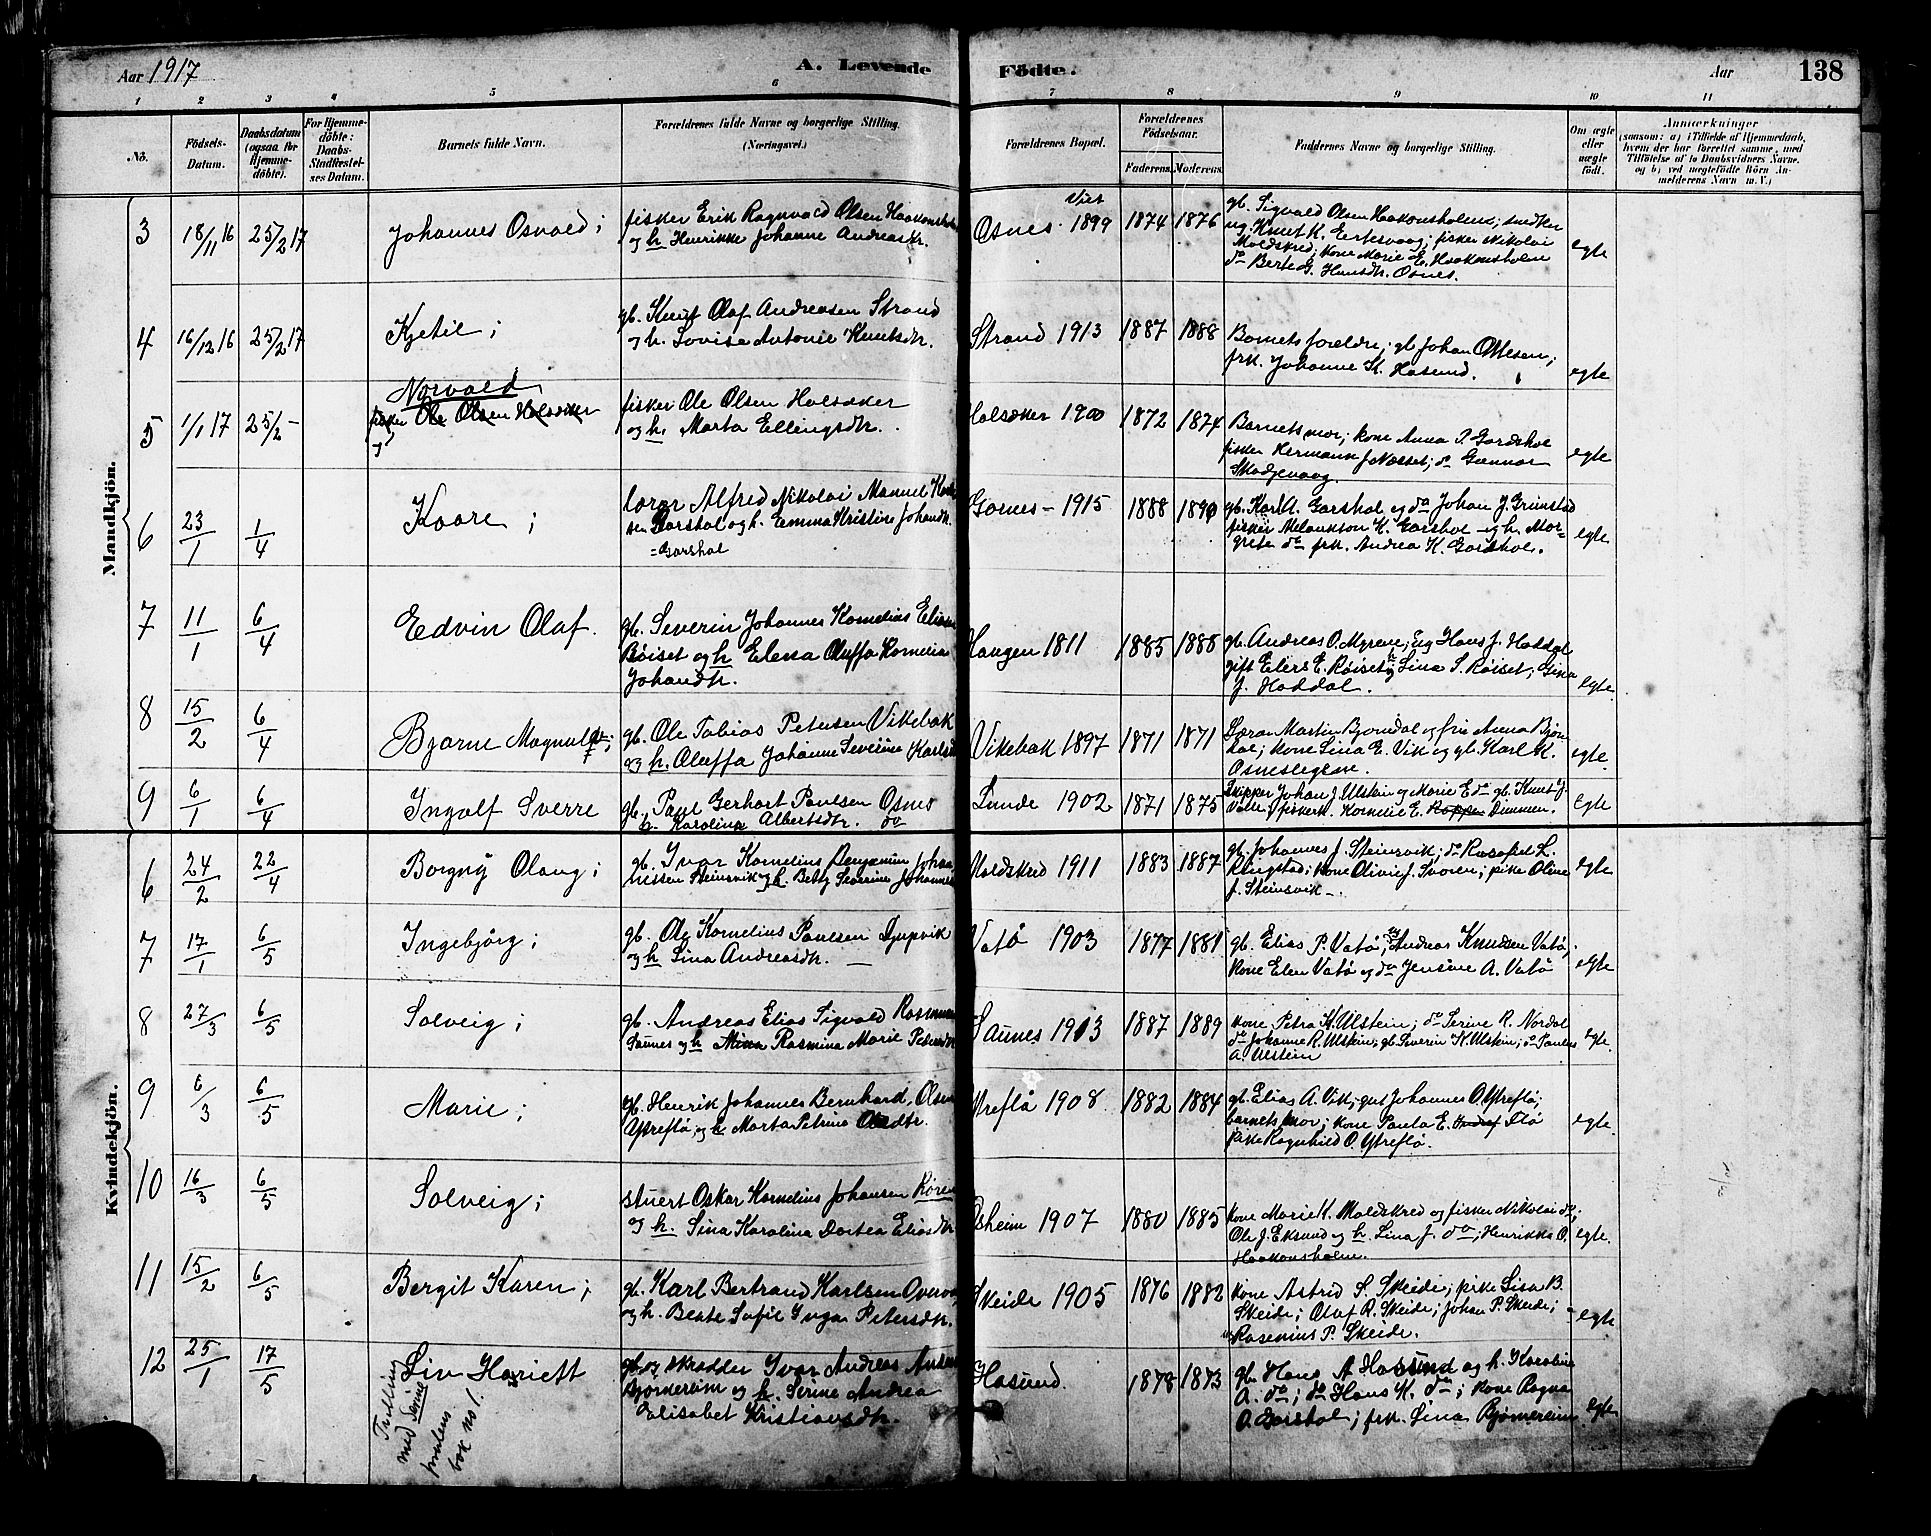 Aar 1917
A. Levende Födte.
Aar
138
1 2 3 4 5 6 7 8 9 10 11
No.
Födsels-
Datum.
Daabsdatum
(ogsaa for
Hjemme-
döbte).
For Hjemme-
döbte:
Daabs-
Stadfæstel-
ses Datum.
Barnets fulde Navn.
Forældrenes fulde Navne og borgerlige Stilling.
(Næringsvei.)
Forældrenes Bopæl.
Forældrenes
Födselsaar.
Faderens. Moderens.
Faddernes Navne og borgerlige Stilling.
Om ægte
eller
uægte
født.
Anmærkninger
(saasom: a) i Tilfælde af Hjemmedaab,
hvem der har forrettet samme, med
Tilföielse af to Daabsvidners Navne,
og b) ved uægtefödte Börn An-
melderens Navn m. V.)
Mandkjön.
3 18/11 16 25/2 17
Johannes Osvald;
fisker Erik Ragnvald Olsen Haakonsholm
og h. Henrikke Johanne Andreasdtr.
Viet
Osnes 1899 1874 1876
gb. Sigvald Olsen Haakonsholm; snedker
ug. Knut K. Eertesvaag; fisker Nikolai
Moldskred; kone Marie E. Haakonsholm
do Berte G. Hansdtr. Osnes.
egte
4 16/12 16 25/2 17
Kjetil;
gb. Knut Olaf Andreasen Strand
og h. Lovise Antonie Knutsdtr.
Strand 1913 1887 1888
Barnets foreldre; gb. Johan Ottesen;
frk. Johanne K. Hasund.
egte
5 1/1 17 25/2 -
Norvald
fisker Ole Olsen Holsæker
og
fisker Ole Olsen Holsæker
og h. Marta Ellingsdtr.
Holsæker 1900 1872 1874
Barnets mor; kone Anna P. Gardshol
fisker Hermann J. Nesset; do Gunnar
Skodjevaag.
egte
6 23/1 1/4
Kaare;
lærer Alfred Nikolai Manuel
sen Garshol og h. Emma Kristine Johandtr.
= Garshol
Garnes - 1915 1888 1890
gb. Karl A. Garshol og do Johan J. Grimstad
fisker Melankton K. Garshol og h. Mar=
grete do frk. Andrea K. Garshol.
egte
7 11/1 6/4
Edvin Olaf.
gb. Severin Johannes Kornelius
Røiset og h Elena Oluffa Kornelia
Johandtr.
Haugen 1811 1885 1888
gb. Andreas O. Myrene; ug Hans J. Haddal
gift Eilers E. Røiset og h Lina S. Røiset; Gina
J. Haddal.
egte
8 15/2 6/4
Bjarne Magnulf;
gb. Ole Tobias Petersen Vikebak
og h. Oluffa Johanne Severine
Vikebak 1897 1871 1871
Lærer Martin Bjørndal og fru Anna Bjørn
dal; kone Lina E. Vik og gb. Karl K.
egte.
9 6/1 6/4
Ingolf Sverre
gb. Paul Gerhart Paulsen Osnes
h. Karolina Albertsdtr. do
Lunde 1902 1871 1875
Skipper Johan J. Ulstein og Marie E do gb. Knut J.
egte
Kvindekjön.
6 24/2 22/4
Borgny Olaug;
gb. Ivar Kornelius Benjamin
nissen Steinsvik og h. Betty Severine
Moldskred 1911 1883 1887
gb. Johannes J. Steinsvik; do Rasafiel L.
Ringstad; kone Olivie J. Svoren; pike Oline
J. Steinsvik -.
egte
7 17/1 6/5
Ingebjörg;
gb. Ole Kornelius Paulsen Djupvik
og h Lina Andreasdtr. -
Vatø 1903 1877 1881
gb. Elias P. Vatø; ug Andreas Knudsen Vatø;
kone Elen Vatø og do Jensine A. Vatø
egte
8 27/3 6/5
Solveig;
gb. Andreas Elias Sigvald
Saunes og h Mina Rasmina Marie
Saunes 1913 1887 1889
kone Petra K. Ulstein; do Serine R. Nordal
do Johanne R. Ulstein; gb. Severin K. Ulstein;
A. Ulstein
egte.
9 6/3 6/5
Marie;
gb. Henrik Johannes Bernhard Olsen
Ytreflø og h Marta Petrina
Ytreflø 1908 1882 1884
gb. Elias A. Vik; gut Johannes O. Ytreflø;
barnets mor; kone Paula E. Flø
pike Ragnhild O. Ytreflø.
egte.
10 16/3 6/5
Solveig;
stuert Oskar Kornelius Johansen
og h. Lina Karolina Dortea Eliasdtr
Osheim 1907 1880 1885
kone Marie K. Moldskred og fisker Nikolai do;
Ole J. Eksund og h. Lina J. do; Henrikke O.
Haakonsholm.
egte.
11 15/2 6/5
Bergit Karen;
gb. Karl Bertrand Karlsen
og h. Beate Sofie Inga Petersdtr.
Skeide 1905 1876 1882
kone Astrid S. Skeide; pike Lisa B.
Skeide; Olaf R. Skeide; Johan P. Skeide;
ug Rasenius P. Skeide.
egte
12 25/1 17/5
Liv Hariett
Tvilling
med Senie
bok no 1.
gb. og skrædder Ivar Andreas
Bjørnereim og h. Serine Andrea
Elisabet Kristiansdtr.
Hasund. 1878 1873
gb. Hans A Hasund og h. Karoline
A. do; do Hans K. do; kone Ragna
O. Garshol; frk. Lina Bjørnereim
egte